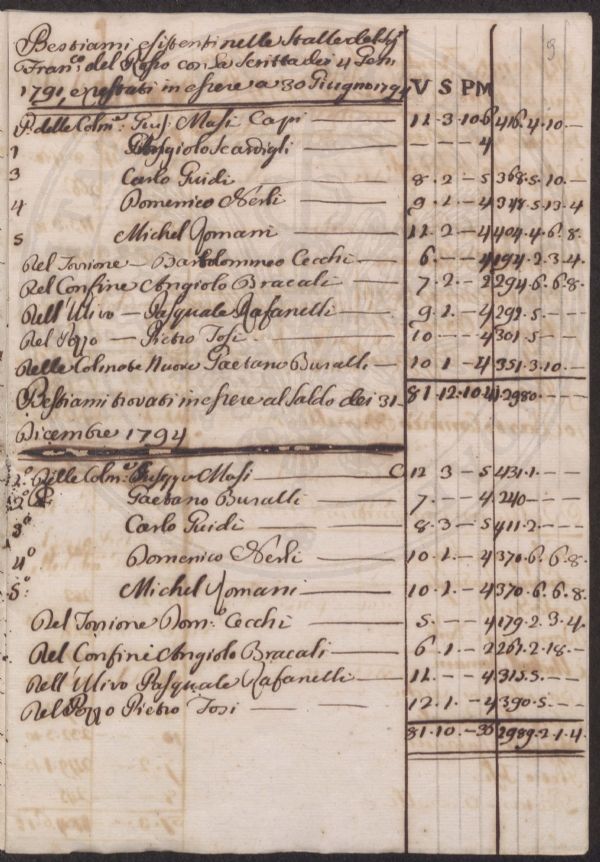 9
Bestiami esistenti nelle Stalle del Sig.
Fran.co del Rosso con la Scritta dei 4 Gen.
1791, e restati in essere a 30 Giugno 1794 V S P M
P.o delle Colm.e: Gius. Masi Capi — 12 . 3 . 10 . 6 416 . 4 . 10 . —
1 Angiolo Scardigli — — — — 4
3 Carlo Guidi 8 . 2 — 5 368 . 5 . 10 . —
4 Domenico Nerli — 9 . 1 . — 4 348 . 5 . 13 . 4
5 Michel Romani — 12 . 2 — 4 404 . 4 . 6 . 8 .
Del Torrione — Bartolommeo Cecchi — 6 . — — 4 194 . 2 . 3 . 4
Del Confine Angiolo Bracali — 7 . 2 . — 2 294 . 6 . 6 . 8 .
Dell'Ulivo — Pasquale Rafanelli — 9 . 1 . — 4 292 . 5 . — —
Del Pozzo — Pietro Tosi — 10 — — 4 301 . 5 — —
Delle Colmate Nuove Gaetano Buralli — 10 . 1 . — 4 351 . 3 . 10 . —
Bestiami trovati in essere al Saldo dei 31 81 . 12 . 10 . 41 2980 — — —
Dicembre 1794
1.o Delle Colm.e Giuseppe Masi — C 12 3 — 5 431 . 1 . — —
2.o Gaetano Buralli — 7 . — — 4 240 — — —
3.o Carlo Guidi — 8 . 3 — 5 411 . 2 . — —
4.o Domenico Nerli — 10 . 1 . — 4 370 . 6 . 6 . 8 .
5.o Michel Romani — 10 . 1 . — 4 370 . 6 . 6 . 8 .
Del Torrione Dom.o Cecchi — 5 . — — 4 179 . 2 . 3 . 4
Del Confine Angiolo Bracali — 6 . 1 . — 2 267 . 2 . 18 . —
Dell'Ulivo Pasquale Rafanelli — 11 . — — 4 315 . 5 . — —
Del Pozzo Pietro Tosi — 12 . 1 . — 4 390 . 5 — —
81 . 10 . — 36 2989 . 2 . 1 . 4 .